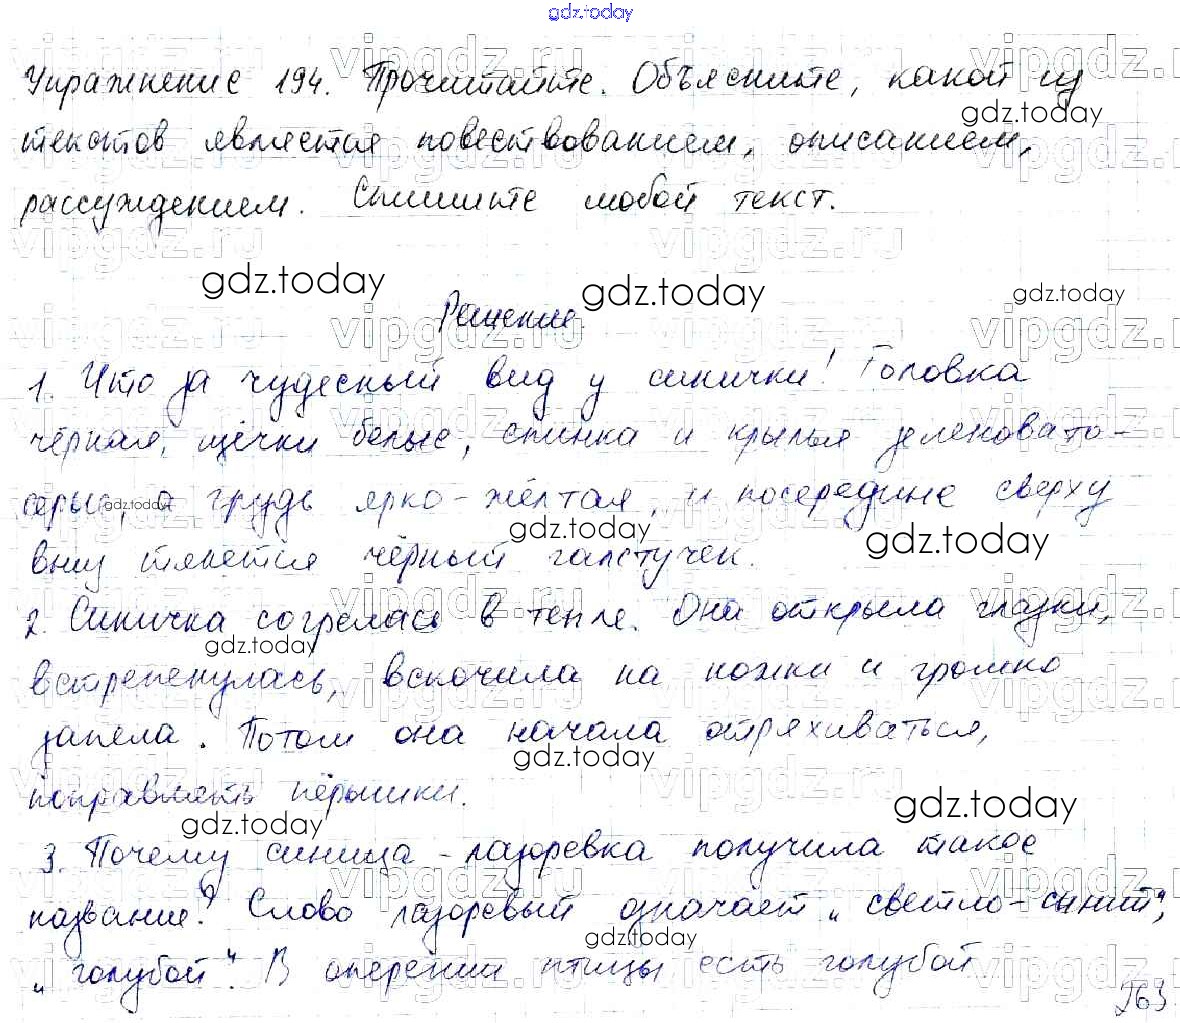 gdz.today
Упражнение 194. Прочитайте. Объясните, какой из
текстов является повествованием, описанием,
рассуждением. Спишите любой текст.
Решение.
1. Что за чудесный вид у синички! Головка
чёрная, щёчки белые, спинка и крылья зеленовато-
серые, а грудь ярко-жёлтая, и посередине сверху
вниз тянется чёрный галстучек.
2. Синичка согрелась в тепле. Она открыла глазки,
встрепенулась, вскочила на ножки и громко
запела. Потом она начала отряхиваться,
поправлять пёрышки.
3. Почему синица-лазоревка получила такое
название? Слово лазоревый означает „светло-синий",
„голубой". В оперении птицы есть голубой